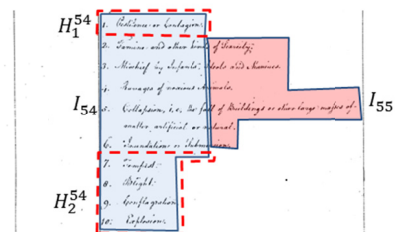 H₁⁵⁴
1. Pestilence or Contagion.
2. Famine and other kinds of Scarcity;
3. Mischief by Infants, Ideots and Maniacs.
I₅₄
4. Ravages of noxious Animals.
I₅₅
5. Collapsion, i.e. the fall of Buildings or other large masses of
matter, artificial or natural.
6. Inundation or Submersion
7. Tempest.
H₂⁵⁴
8. Blight.
9. Conflagration
10. Explosion.